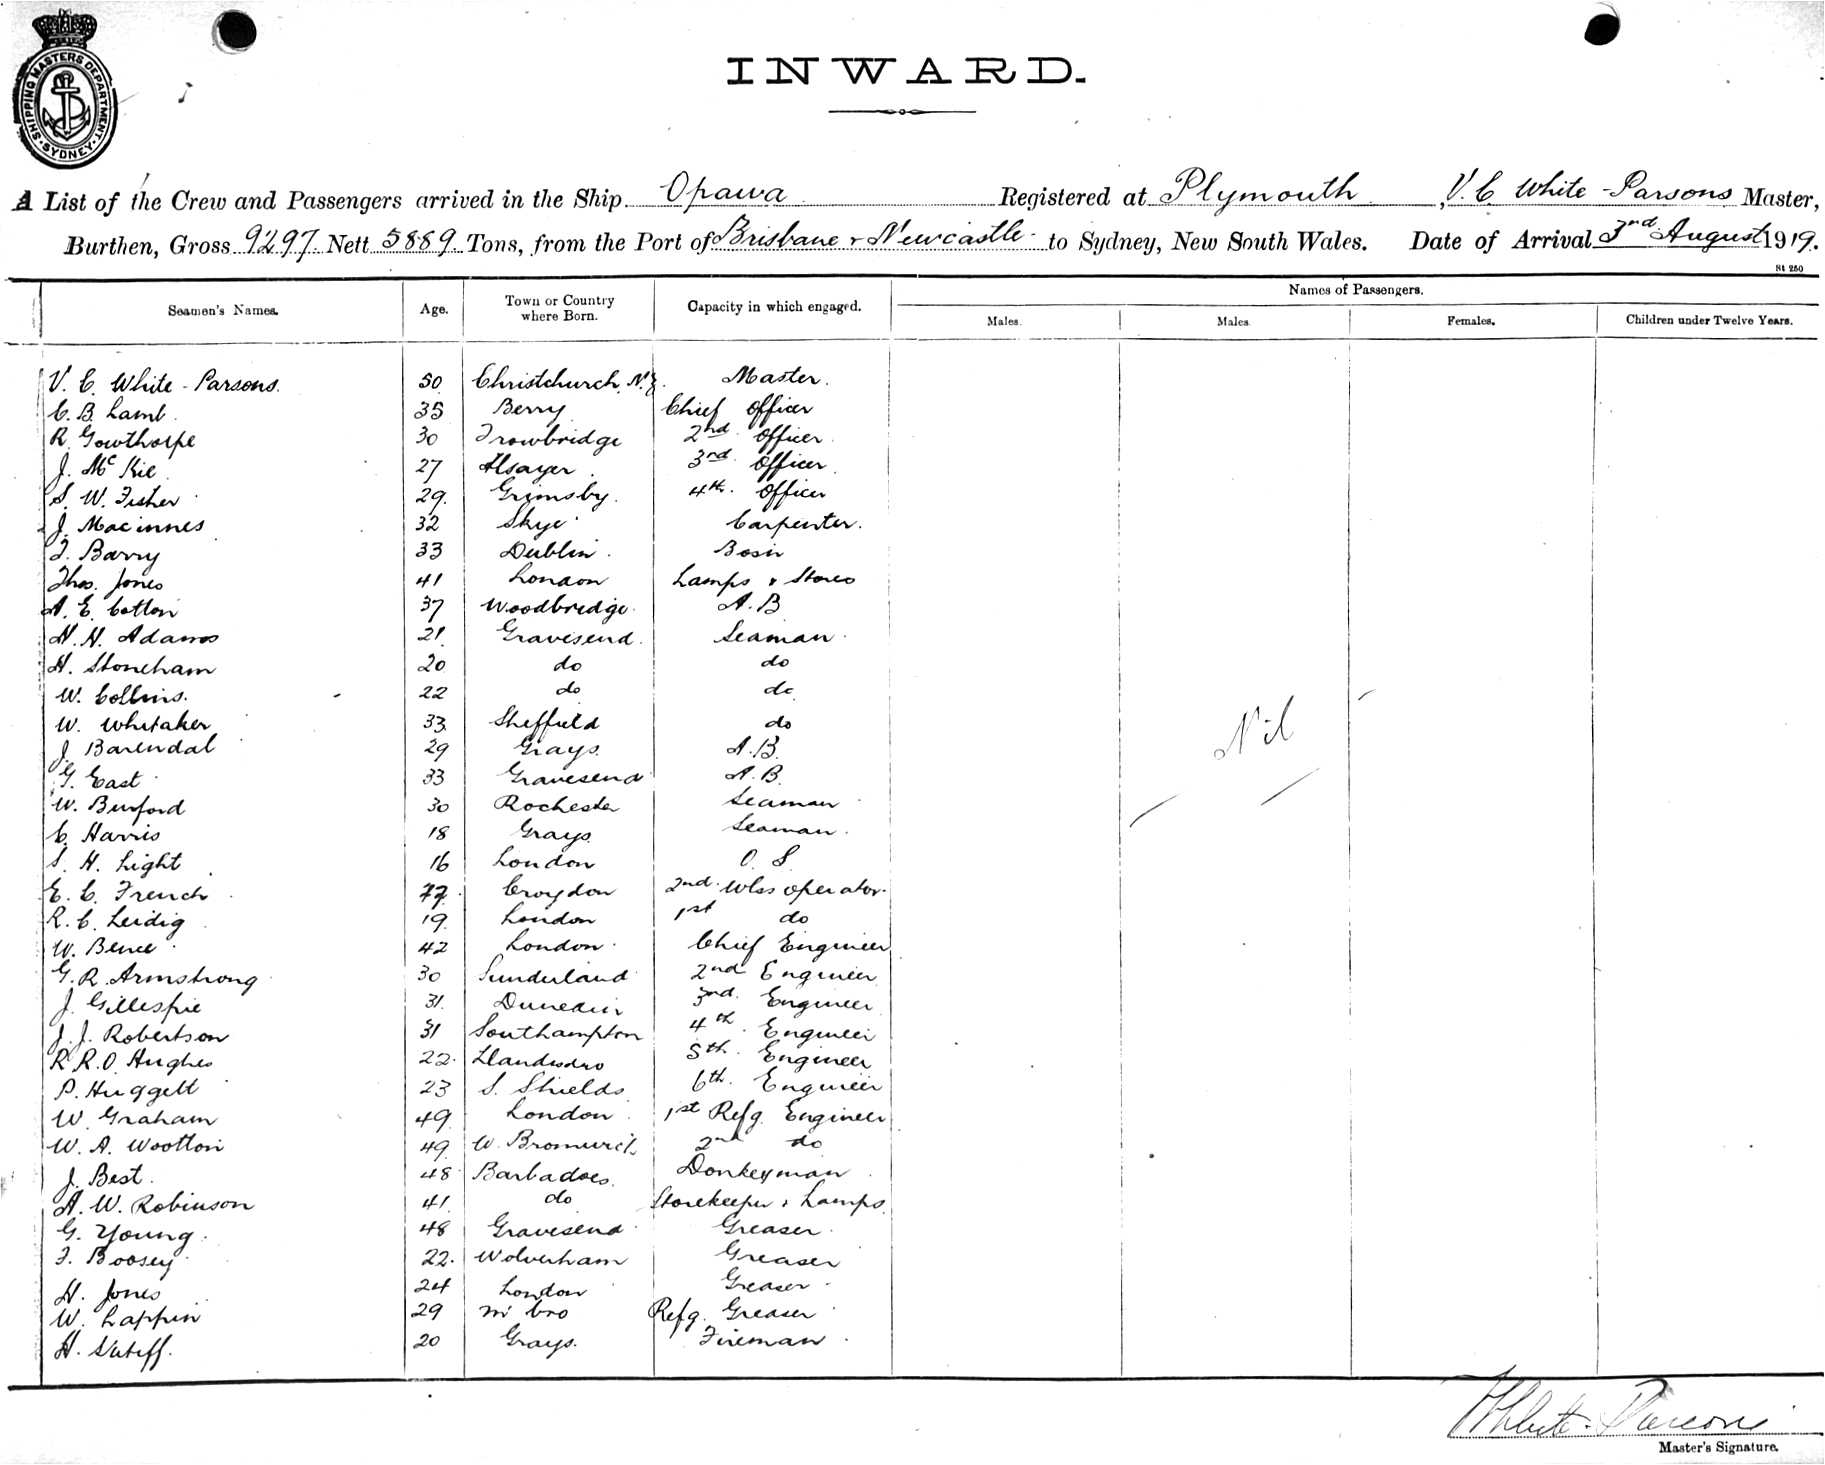 SHIPPING MASTERS DEPARTMENT
SYDNEY
INWARD.
A List of the Crew and Passengers arrived in the Ship Opawa Registered at Plymouth, V. C. White-Parsons Master,
Burthen, Gross 9297 Nett 5889 Tons, from the Port of Brisbane & Newcastle to Sydney, New South Wales. Date of Arrival 3rd August 1919.
St 250
Seamen's Names. Age. Town or Country where Born. Capacity in which engaged. Names of Passengers.
Males. Males Females. Children under Twelve Years.
V. C. White-Parsons. 50 Christchurch N.Z. Master.
C. B. Lamb. 35 Berry Chief Officer
R. Gowthorpe 30 Trowbridge 2nd Officer
J. McKie 27 3rd Officer
S. W. Fisher 29. Grimsby. 4th. Officer
J. Macinnes 32 Skye Carpenter.
J. Barry 33 Dublin. Bosn
Thos. Jones 41 London Lamps & Stores
A. E. Cotton 37 Woodbridge. A.B
H. H. Adams 21. Gravesend. Seaman.
H. Stoneham 20 do do
W. Collins. 22 do do
W. Whitaker 33 Sheffield do
J. Barendal 29 Grays. A.B.
G. East 33 Gravesend A.B.
W. Burford 30 Rochester Seaman
C. Harris 18 Grays. Seaman.
S. H. Light 16 London O. S.
E. C. French Croydon 2nd. Wlss operator.
R. C. Leidig 19 London 1st do
W. Bence 42 London. Chief Engineer
G. R. Armstrong 30 Sunderland 2nd Engineer
J. Gillespie 31. Dunedin 3rd. Engineer
J. J. Robertson 31 Southampton 4th. Engineer
R. R. O. Hughes 22. 5th. Engineer
P. Huggett 23 S. Shields 6th. Engineer
W. Graham 49. London 1st Refg. Engineer
W. A. Wootton 49. W. Bromwich 2nd do
J. Best. 48 Barbadoes. Donkeyman
A. W. Robinson 41. do Storekeeper & Lamps.
G. Young. 48 Gravesend Greaser.
F. Boosey 22. Wolverham Greaser
H. Jones 24 London Greaser
W. Lappin 29 M'bro Refg. Greaser
H. 20 Grays. Fireman
Nil
White-Parsons
Master's Signature.